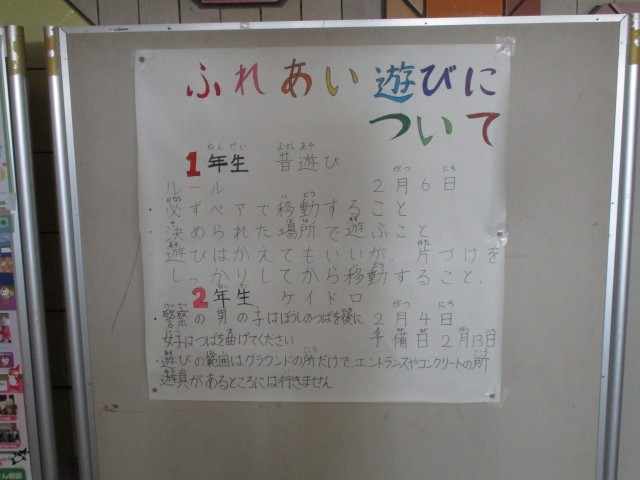 ふれあい遊びに
ついて
1年生 昔遊び
ルール 2月6日
・必ずペアで移動すること
・決められた場所で遊ぶこと.
・遊びはかえてもいいが、片づけを
しっかりしてから移動すること.
2年生 ケイドロ
・警察の男の子はぼうしのつばを後に 2月4日
女子はつばを曲げてください 予備日2月13日
・遊びの範囲はグラウンドの所だけで、エントランスやコンクリートの所
遊具があるところには行きません